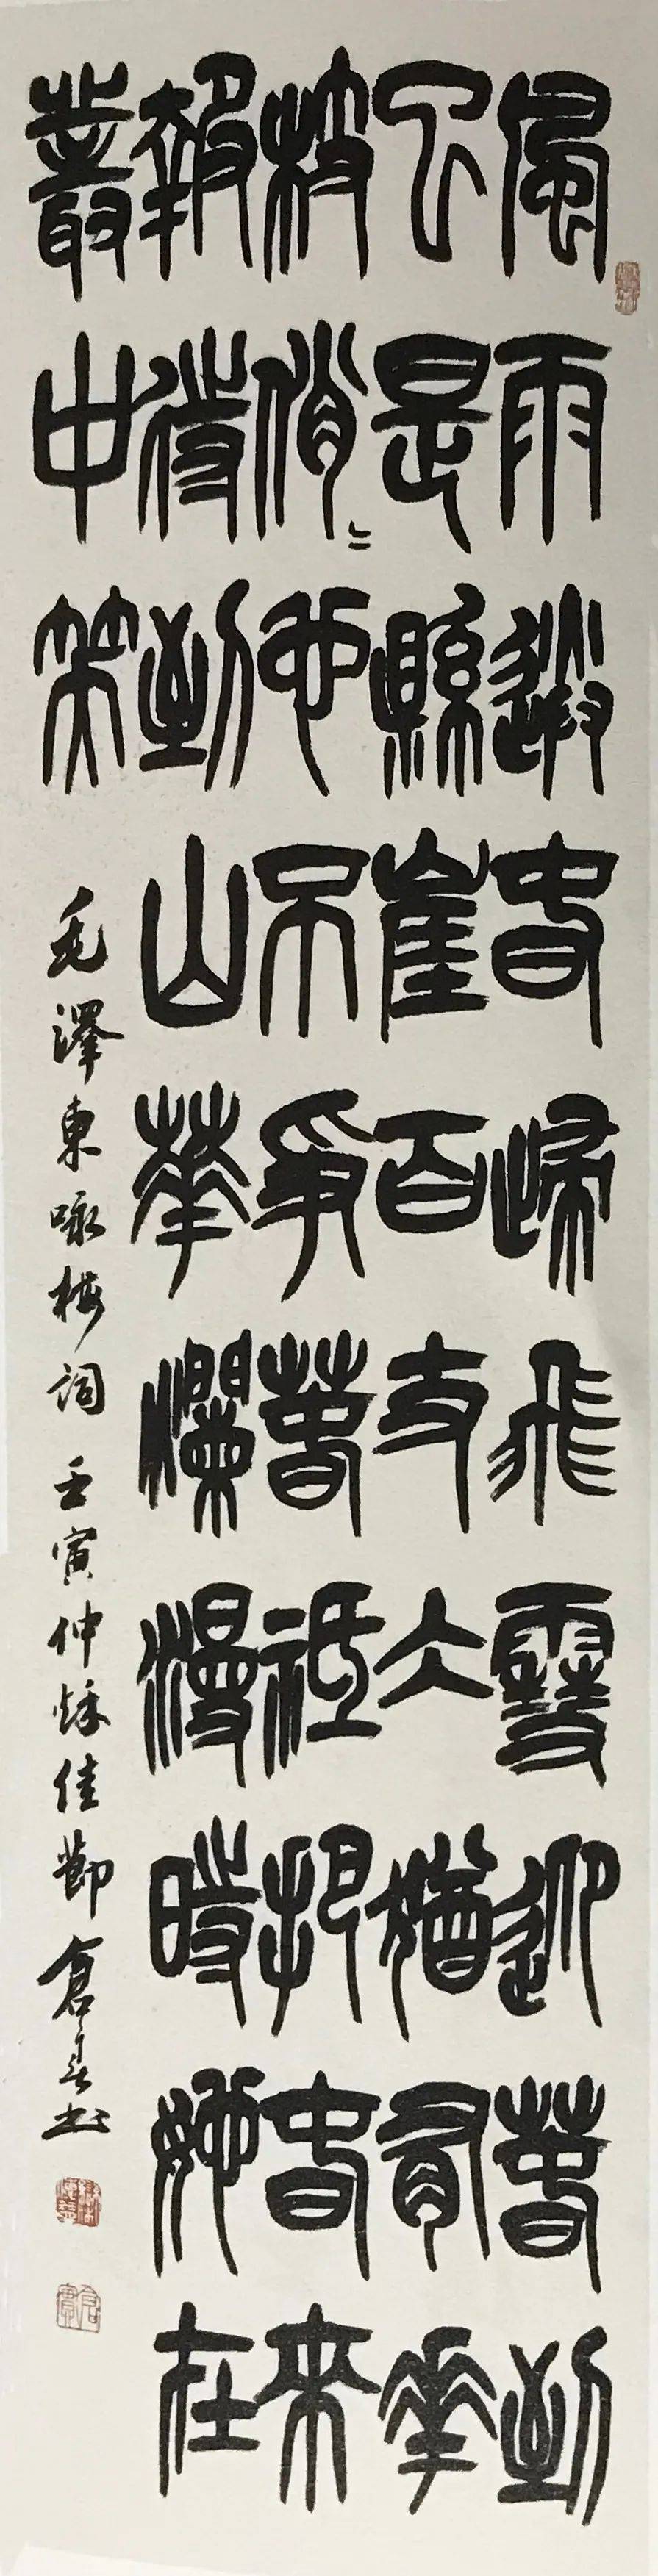 風雨送春歸飛雪迎春到
已是縣崖百丈仌猶有華
枝俏〻也不爭春祇把春來
報待到山華爛漫時她在
叢中笑
毛澤東咏梅詞 壬寅仲秋佳節 倉 书